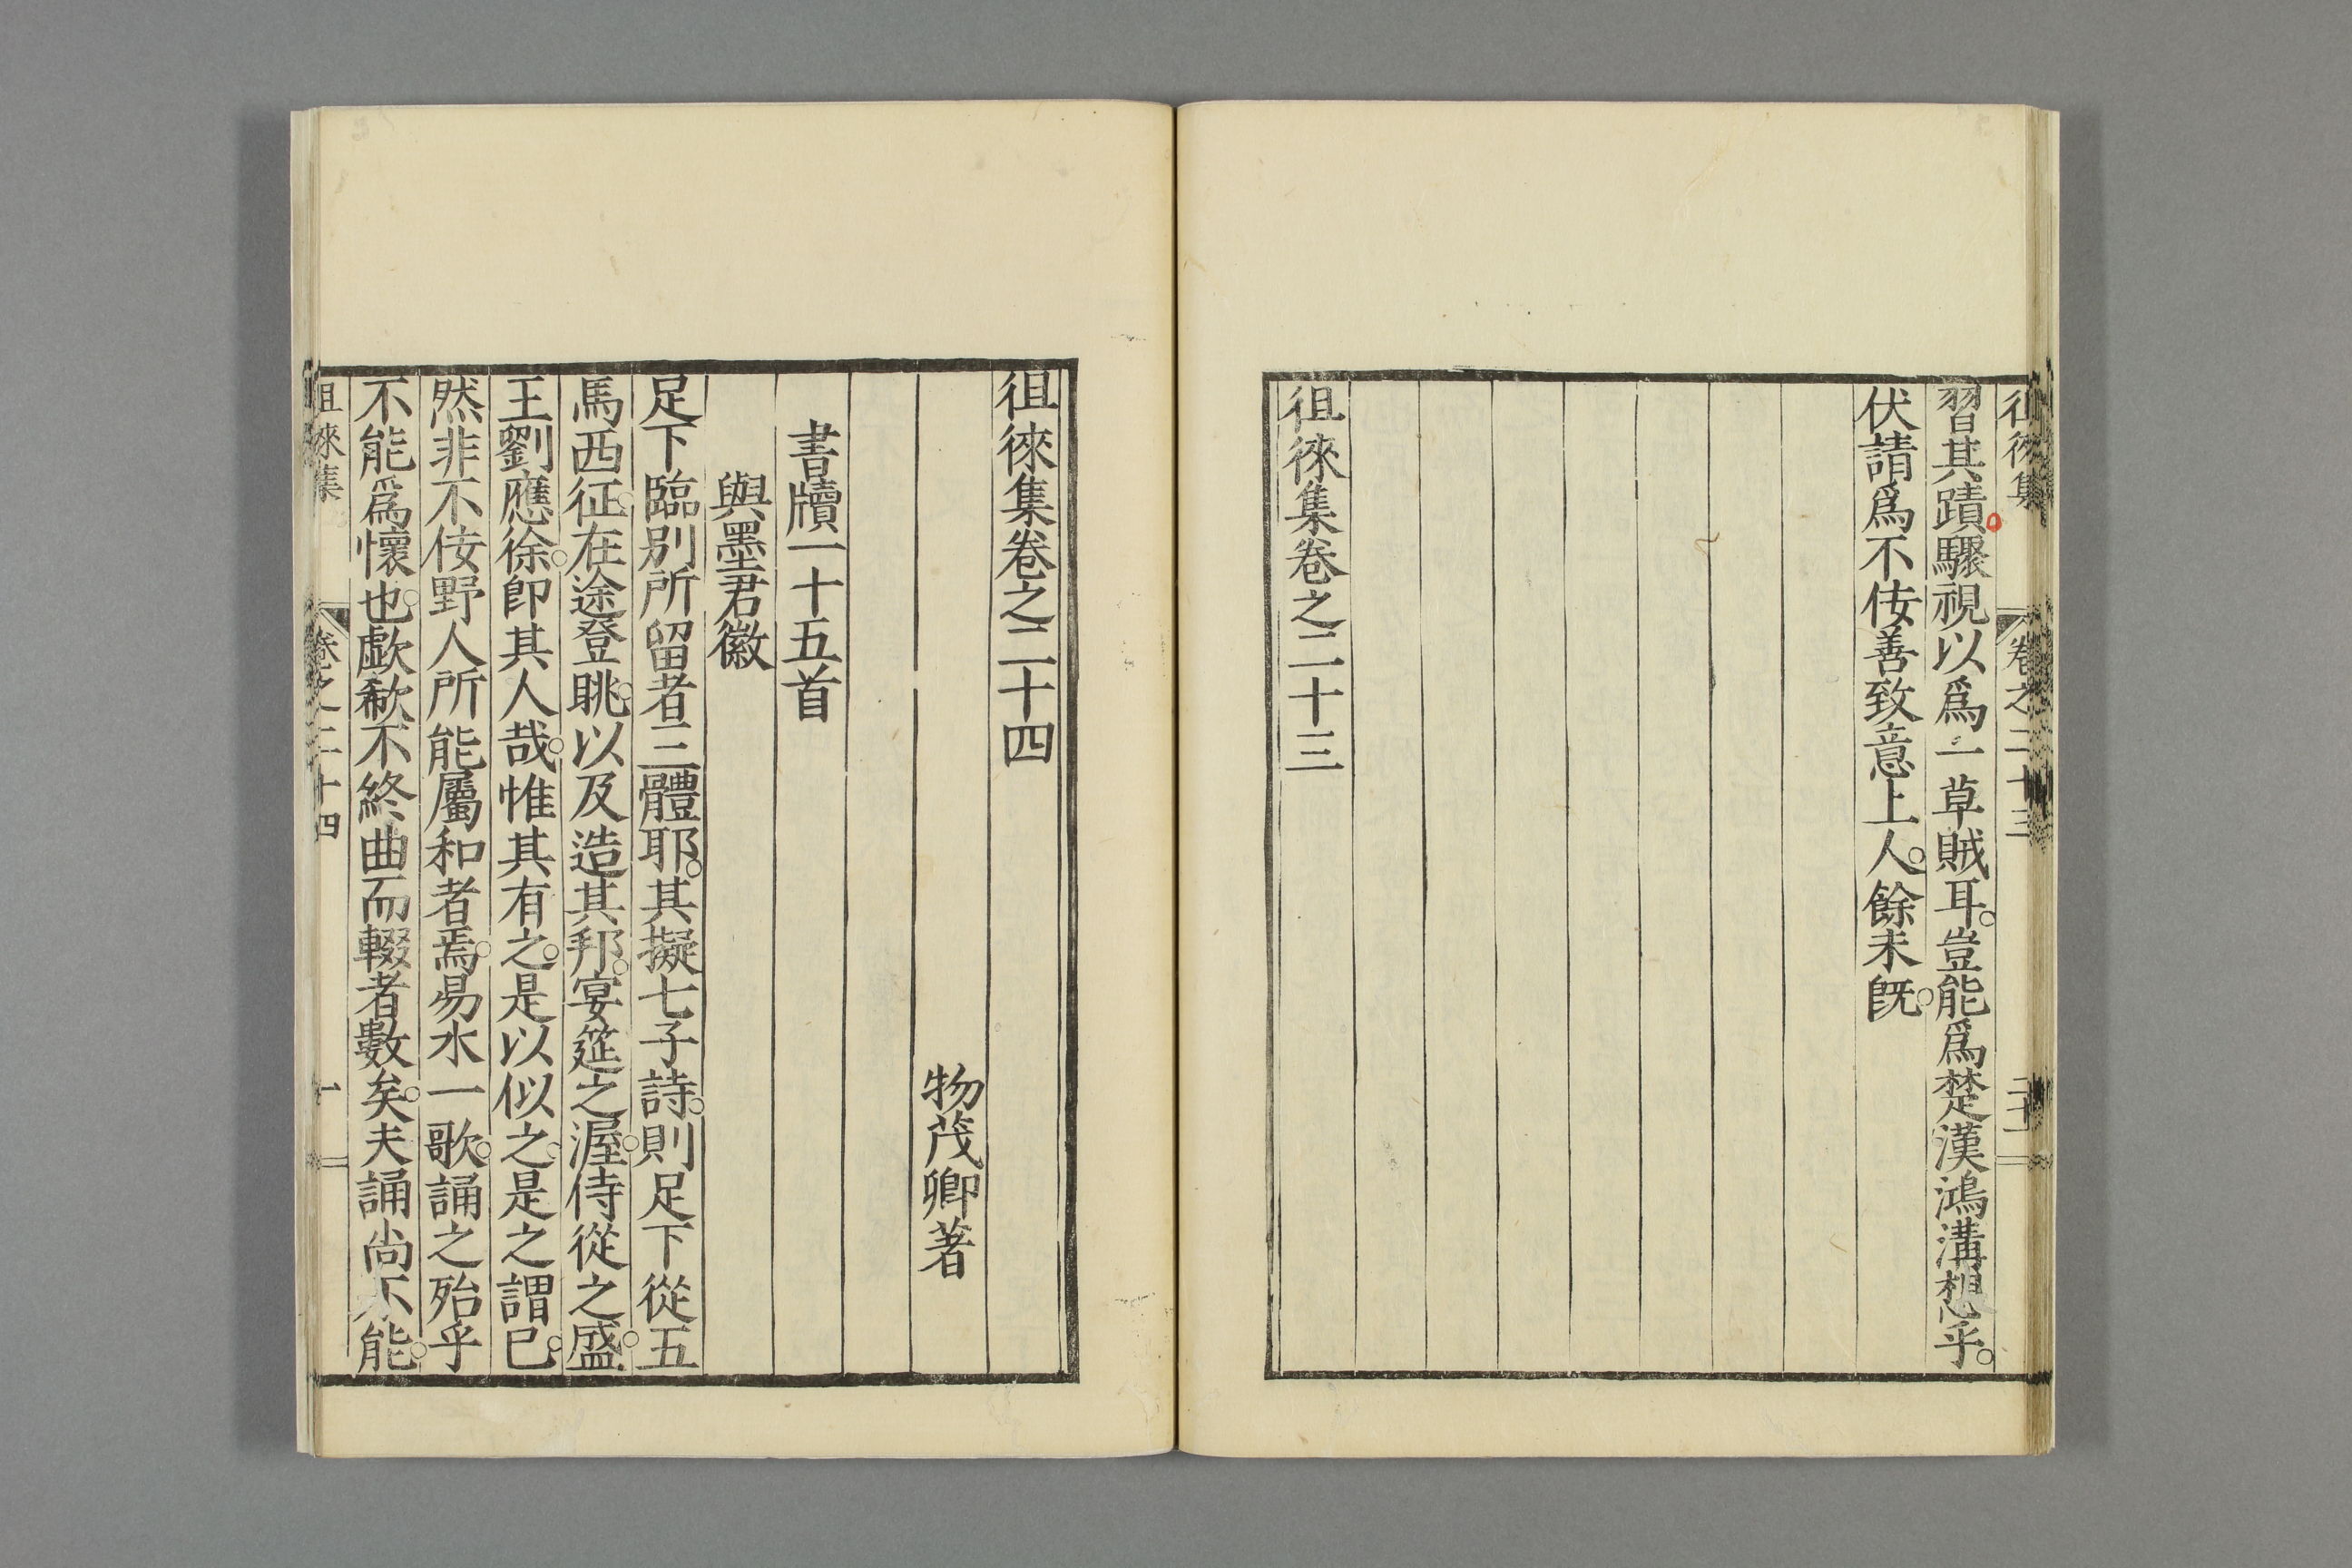 徂徠集 卷之二十三
習其蹟驟視以爲一草賊耳。豈能爲楚漢鴻溝想乎。
伏請爲不佞善致意上人。餘未既。
徂徠集卷之二十三
徂徠集卷之二十四
物茂卿著
書牘一十五首
與墨君徽
足下臨別所留者三體耶。其擬七子詩。則足下從五
馬西征。在途登眺。以及造其邦。宴筵之渥。侍從之盛。
王劉應徐。卽其人哉。惟其有之。是以似之。是之謂已。
然非不佞野人所能屬和者焉。易水一歌。誦之殆乎
不能爲懷也。歔欷不終曲而輟者數矣。夫誦尚不能。
徂徠集 卷之二十四 一